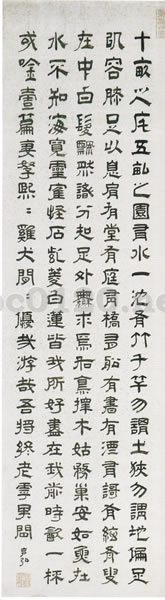 十畝之宅五畝之園有水一池有竹千竿勿謂土狹勿謂地偏足
以容膝足以息肩有堂有庭有橋有船有書有酒有歌有絃有叟
在中白髮飄然識分知足外無求焉如鳥擇木姑務巢安如
水不知海寬靈隺怪石紫菱白蓮皆我所好盡在我前時飲一杯
或唫壹篇妻孥熙〻雞犬閒〻優哉游哉吾將終老虖其間